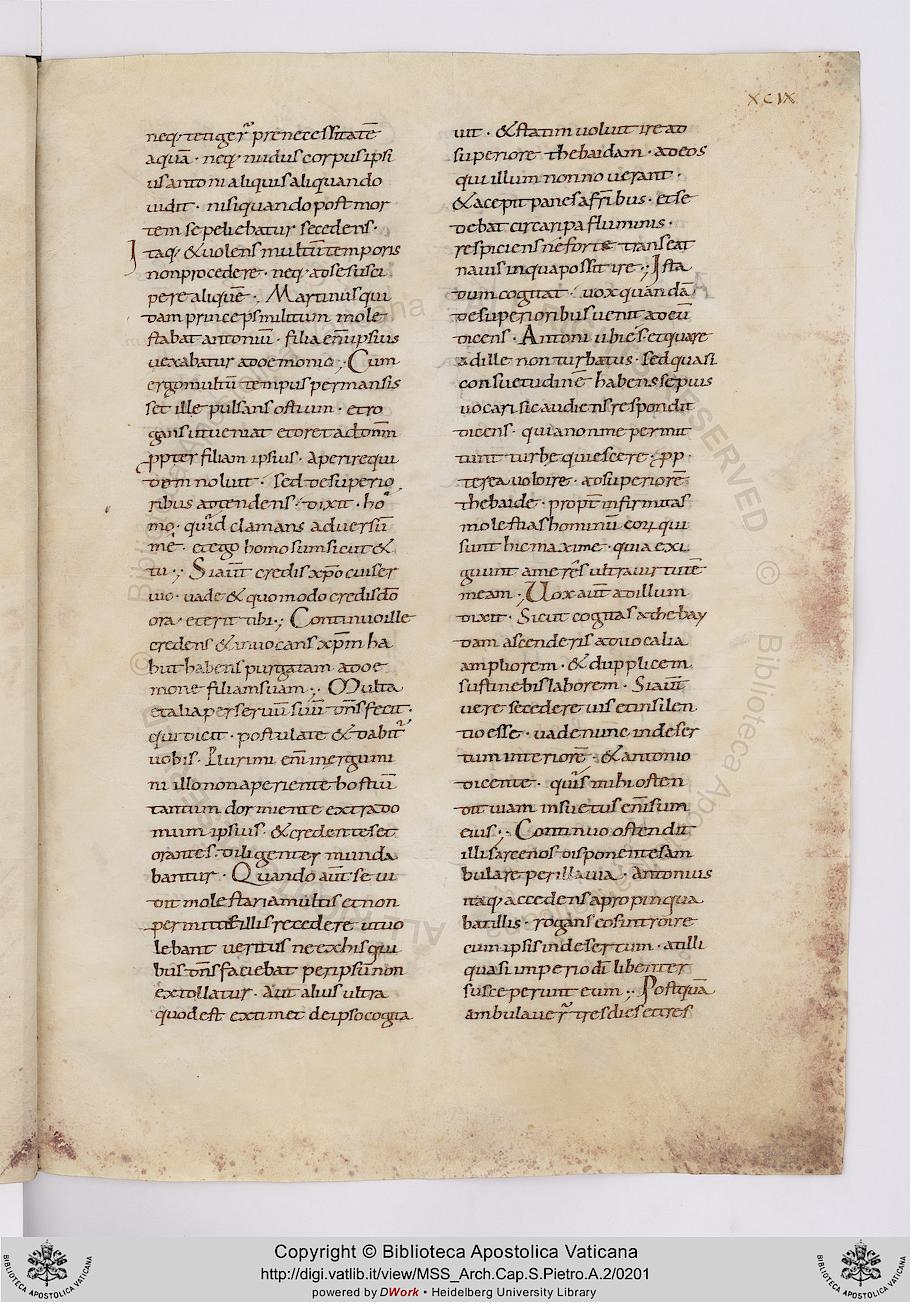 XCIX
neq; tetiger̃ prenecessitatē
aquā · neq; nudus corpus ipsi
us antoni aliquis aliquando
uidit · nisi quando post mor
tem sepeliebatur secedens ·
Itaq; & uolens multū temporis
non procedere · neq; ad se susci
pere aliquē ·, Martinus qui
dam princeps militum mole
stabat antoniū · filia eñ ipsius
uexabatur a doemonio ·, Cum
ergo multū tempus permansis
set ille pulsans ostium · et ro
gans ut ueniat et oret ad dom̄
ꝓpter filiam ipsius · aperire qui
dem noluit · sed de superio
ribus adtendens · dixit · ho
mo · quid clamans aduersū
me · et ego homo sum sicut &
tu ·, Si aūt credis xp̄o cui ser
uio · uade & quomodo credis dō
ora · et erit tibi ·, Continuo ille
credens & inuocans xp̄m ha
buit habens purgatam a doe
mone filiam suam ·, Multa
et alia per seruū suū dn̄s fecit ·
qui dicit · postulate & dabitr̃
uobis · Plurimi enī inergumi
ni illo non aperiente hostiū
tantum dormiente extra do
mum ipsius · & credentes et
orantes · diligenter munda
bantur · Quando aūt se ui
dit molestari a multis et non
permitti illis recedere ut uo
lebant ueritus ne ex his qui
bus dn̄s faciebat per ipsū non
extollatur · Aut alius ultra
quod est extimet de ipso cogita
uit · & statim uoluit ire ad
superiore thebaidam · ad eos
qui illum non nouerant ·
& acepit panes a frībus · et se
debat circa ripa fluminis ·
respiciens ne forte transeat
nauis in qua possit ire ·, Ista
dum cogitat · uox quandā
de superioribus uenit ad eū
dicens · Antoni ubi es · et quare
ad ille non turbatus · sed quasi
consuetudinē habens sepius
uocari sic audiens respondit
dicens · quia non me permit
tunt turbe quiescere · ꝓp
terea uolo ire · ad superiorē
thebaide · propt̄ infirmitas
molestias hominū eoꝝ qui
sunt hic maxime · quia exi
gunt a me res̄ ultra uirtutē
meam ·, Uox aūt ad illum
dixit · Sicut cogitas & thebay
dam ascenderis ad uocalia
ampliorem · & dupplicem
sustinebis laborem · Si aūt
uere secedere uis et in silen
tio esse · uade nunc in deser
tum interiorē · & antonio
dicente · quis mihi osten
dit uiam insuetus enī sum
eius ·, Continuo ostendit
illi sarcenos disponentes am
bulare per illa uia · antonius
itaq; accedens apropinqua
bat illis · rogans eos introire
cum ipsis in desertum · at illi
quasi imperio dī libenter
susceperunt eum ·, Postquā
ambulauer̃ tres dies et tres
Copyright © Biblioteca Apostolica Vaticana
http://digi.vatlib.it/view/MSS_Arch.Cap.S.Pietro.A.2/0201
powered by DWork • Heidelberg University Library